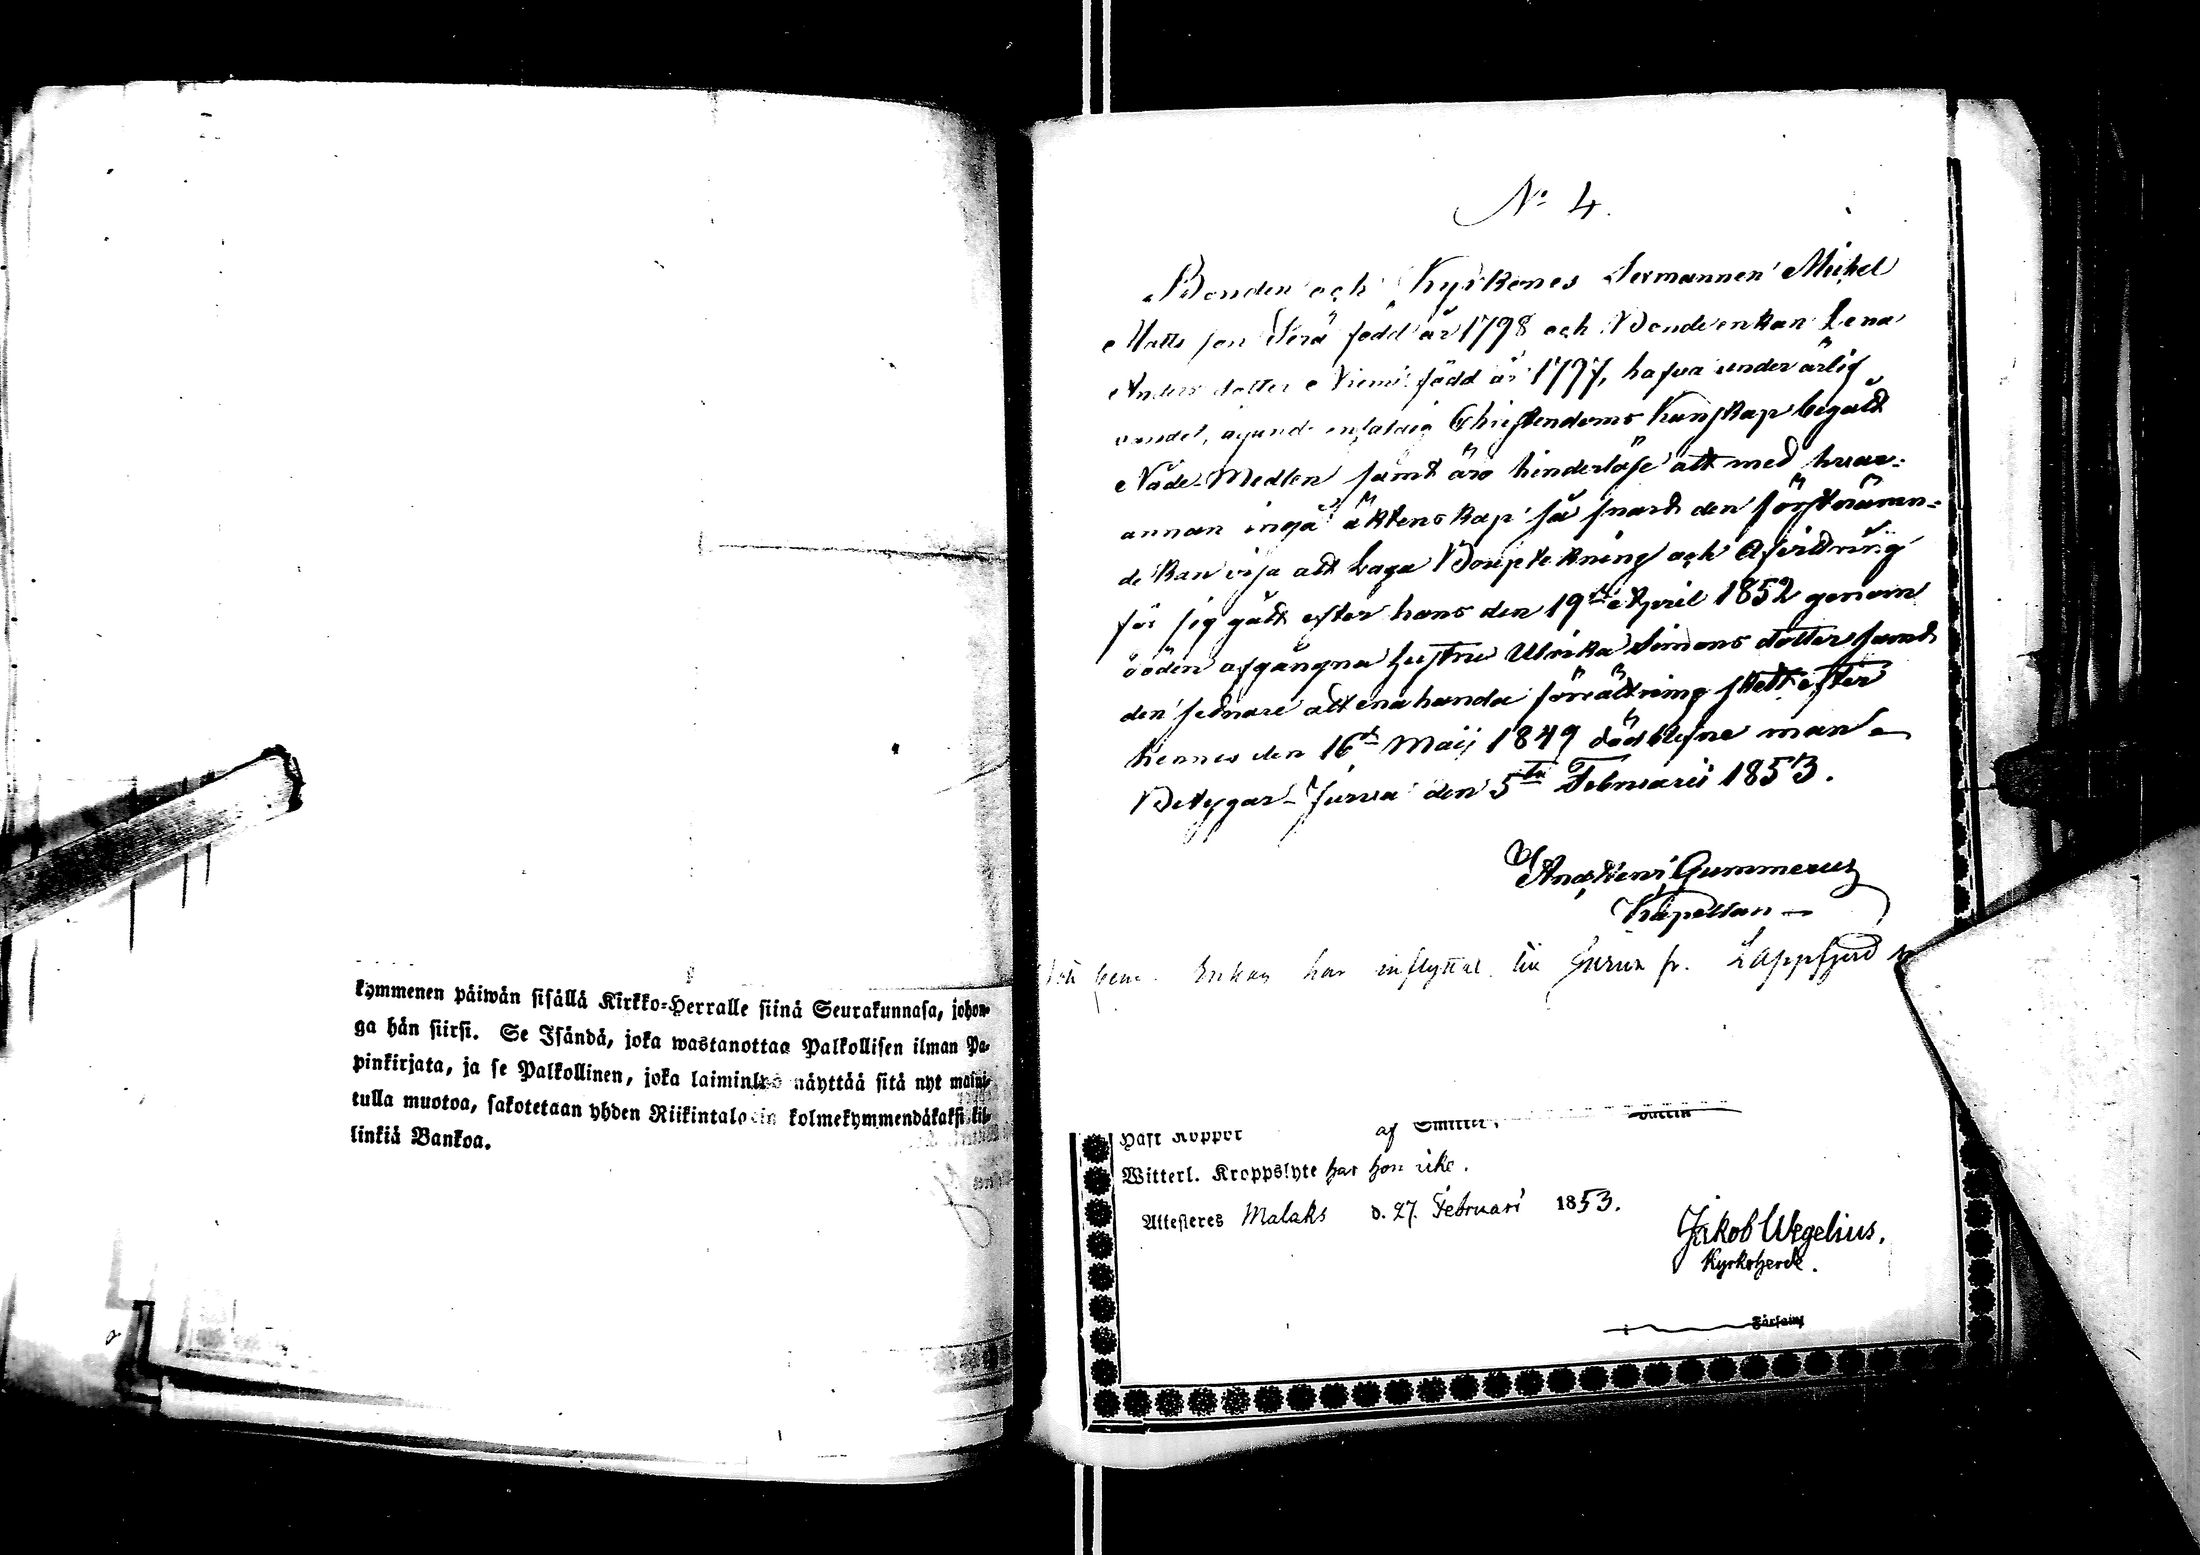 kymmenen päiwän sisällä Kirkko-Herralle siinä Seurakunnasa, johon-
ga hän siirsi. Se Isändä, joka wastanottaa Palkollisen ilman Pa-
pinkirjata, ja se Palkollinen, joka laiminlyö näyttää sitä nyt maini-
tulla muotoa, sakotetaan yhden Riikintalarin kolmekymmendäkaksi kil-
linkiä Bankoa.
N:o 4.
Bonden och Kyrkones Sexmannen Michel
Matts son Perä född år 1798 och Bondeenkan Lena
Anders dotter Niemi född år 1797, hafva under ärlig
vandel, ägande enfaldig Christendoms kunskap begått
Nåde-Medlen samt äro hinderlöse att med hvar-
annan ingå äktenskap så snart den förstnämn-
de kan visa att laga Boupteckning och Afvittring
för sig gått efter hans den 19de April 1852 genom
döden afgångna hustru Ulrika Simons dotter samt
den sednare att enahanda förrättning skett efter
hennes den 16de Maij 1849 död blefne man
Betygar Jurva den 5te Februarii 1853.
Gummerus
Kapellan
Enkan har inflyttat till Jurva fr. Lappfjerd
Haft Koppor af
Witterl. Kroppslyte har hon icke.
Attesteres Malaks d. 27. Februari 1853.
Jakob Wegelius.
Kyrkoherde.